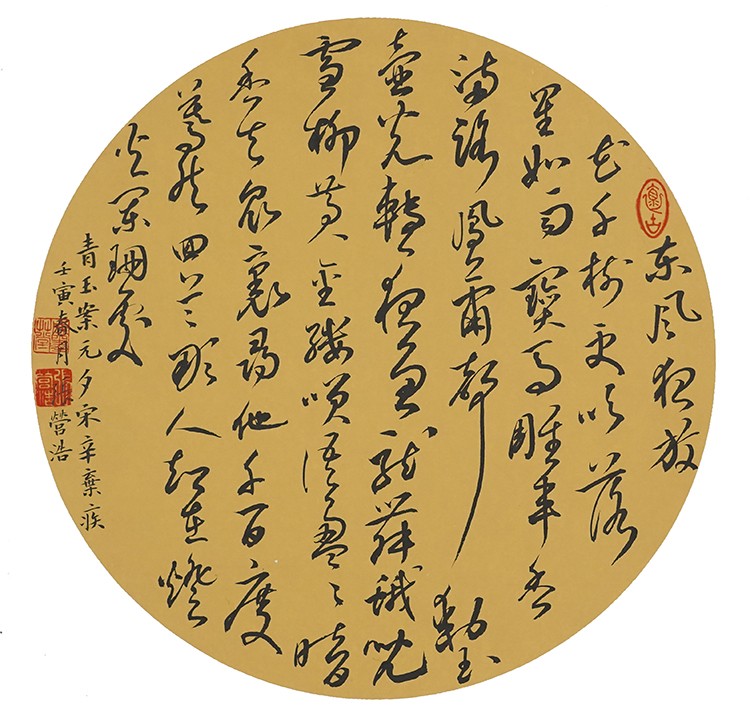 东风夜放
花千树更吹落
星如雨寶马雕车香
满路凤箫声動玉
壶光轉一夜鱼龙舞蛾儿
雪柳黄金缕笑语盈盈暗
香去众裏尋他千百度
蓦然回首那人却在燈
火阑珊处
青玉案元夕宋辛棄疾
壬寅春月营浩